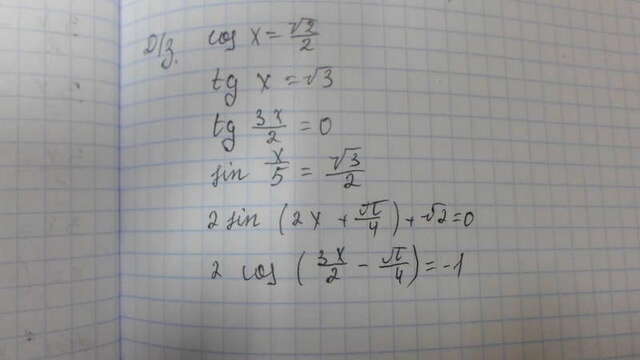 D/з. cos x = √2/2
tg x = √3
tg 3x/2 = 0
sin x/5 = √3/2
2 sin (2x + π/4) + √2 = 0
2 cos (3x/2 - π/4) = -1